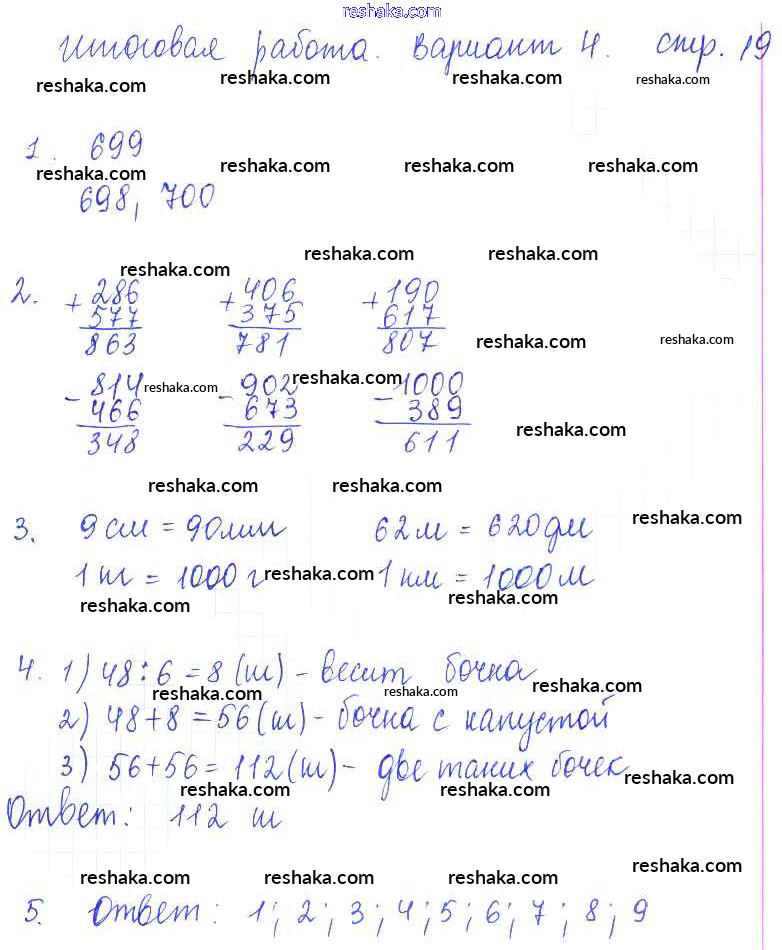 reshaka.com
Итоговая работа. Вариант 4. стр. 19
reshaka.com reshaka.com reshaka.com reshaka.com
1. 699
reshaka.com reshaka.com reshaka.com reshaka.com
698, 700
reshaka.com reshaka.com reshaka.com
2. + 286 + 406 + 190
577 375 617
863 781 807
reshaka.com reshaka.com
- 814 - 902 - 1000
reshaka.com reshaka.com
466 673 389
348 229 611
reshaka.com
reshaka.com reshaka.com reshaka.com
3. 9 см = 90 мм 62 м = 620 дм
1 кг = 1000 г 1 км = 1000 м
reshaka.com reshaka.com reshaka.com
4. 1) 48 : 6 = 8 (кг) - весит бочка
reshaka.com reshaka.com reshaka.com
2) 48 + 8 = 56 (кг) - бочка с капустой
3) 56 + 56 = 112 (кг) - две таких бочек
reshaka.com reshaka.com reshaka.com
Ответ: 112 кг
reshaka.com reshaka.com reshaka.com reshaka.com
5. Ответ: 1; 2; 3; 4; 5; 6; 7; 8; 9